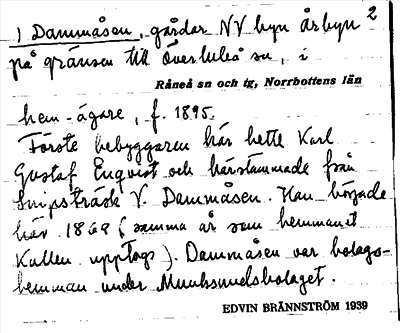 1 Dammåsen, gårdar NV byn Årbyn 2
på gränsen till Överluleå sn, i
Råneå sn och tg, Norrbottens län
hem-ägare, f. 1895.
Förste bebyggaren här hette Karl
Gustaf Enqvist och härstammade från
Snipsträsk V. Dammåsen. Han började
här 1869 (samma år som hemmanet
Kullen upptogs). Dammåsen var bolags-
hemman under Munksundsbolaget.
EDVIN BRÄNNSTRÖM 1939